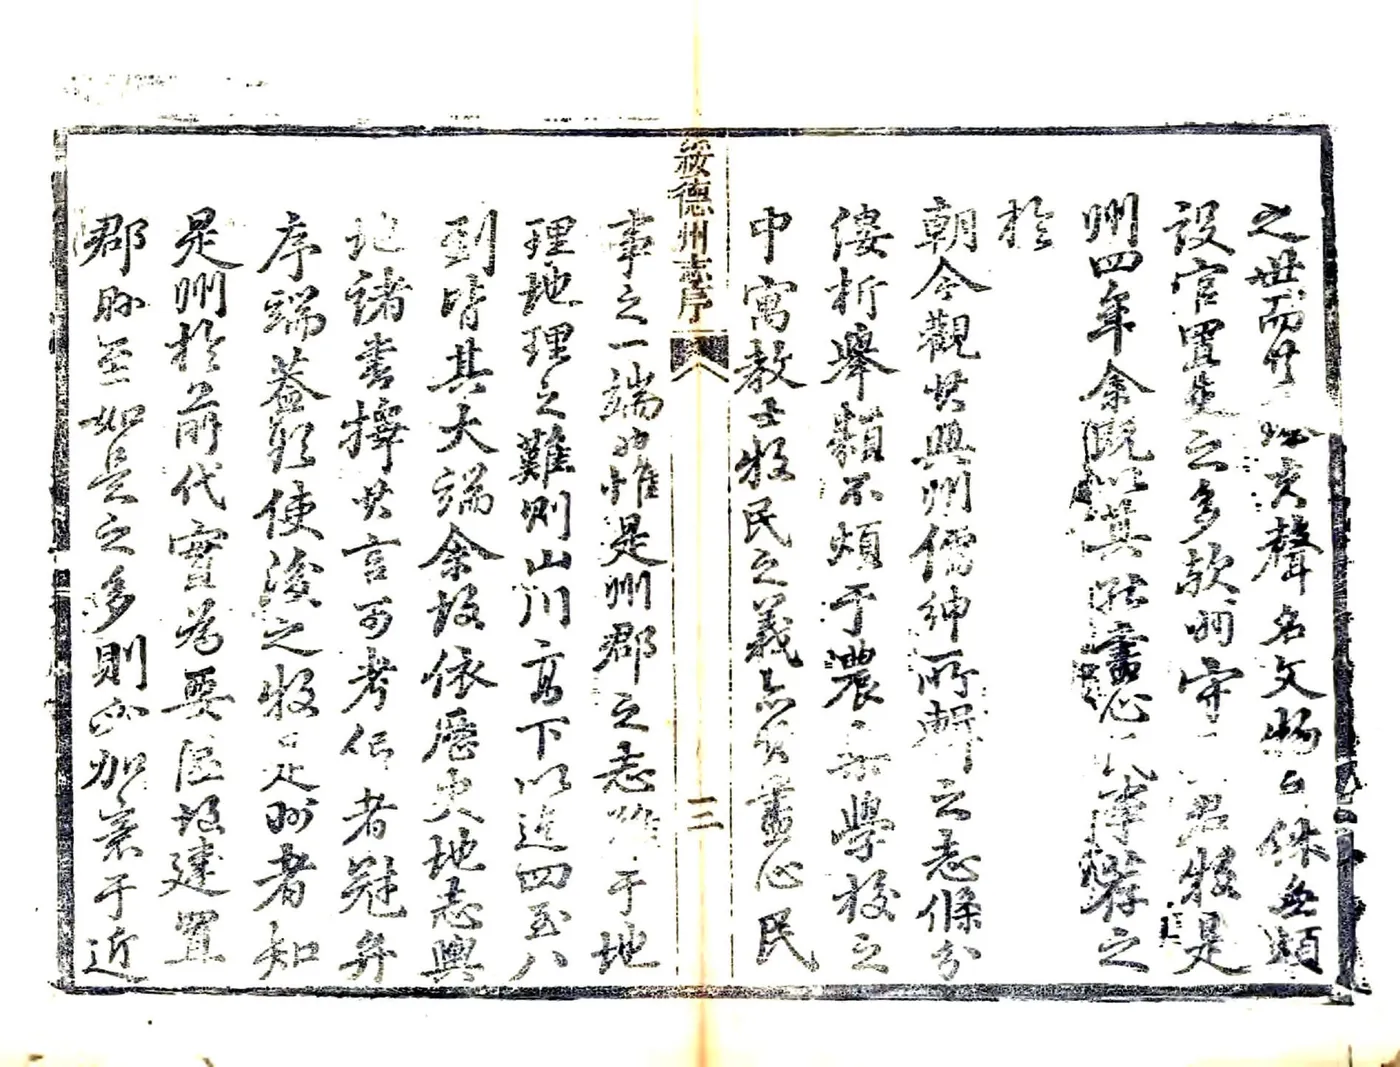 之世而廿聲名文物日休無煩
設官置吏之多歟州守君牧是
州四年余既以其盡心薦之
於
朝今觀其與州儒紳所輯之志條分
僂析舉類不煩于農桑學校之
中寓教士牧民之義亦有盡心民
綏德州志序
三
事之一端也惟是州郡之志難于地
理地理之難則山川高下以迄四至八
到皆其大端余故依歷史地志輿
地諸書擇其言可考信者冠弁
序端蓋欲使後之牧是州者知
是州於前代實為要區故建置
郡縣至如是之多則而加意于近